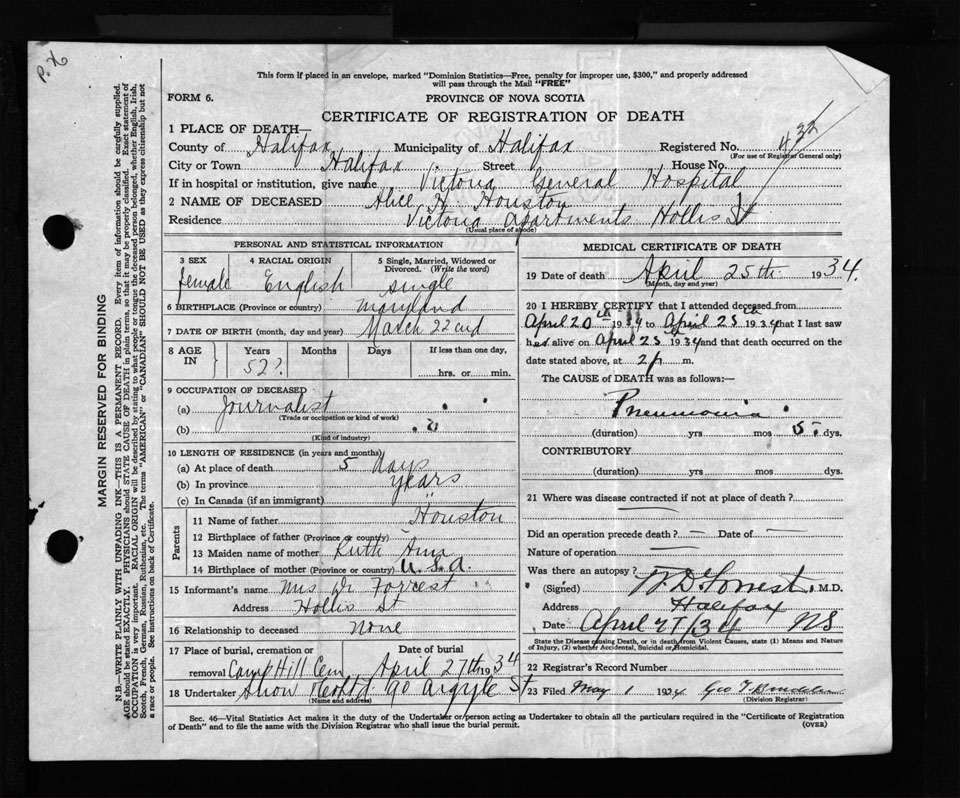 P. X
This form if placed in an envelope, marked "Dominion Statistics—Free, penalty for improper use, $300," and properly addressed
will pass through the Mail "FREE"
FORM 6.
PROVINCE OF NOVA SCOTIA
CERTIFICATE OF REGISTRATION OF DEATH
1 PLACE OF DEATH—
County of Halifax Municipality of Halifax Registered No. 432
(For use of Registrar General only)
City or Town Halifax Street House No.
If in hospital or institution, give name Victoria General Hospital
2 NAME OF DECEASED Alice H. Houston
Residence Victoria Apartments Hollis St
(Usual place of abode)
PERSONAL AND STATISTICAL INFORMATION
3 SEX 4 RACIAL ORIGIN 5 Single, Married, Widowed or
Divorced. (Write the word)
female English single
6 BIRTHPLACE (Province or country) Maryland
7 DATE OF BIRTH (month, day and year) March 22nd
8 AGE IN Years Months Days If less than one day,
52? hrs. or min.
9 OCCUPATION OF DECEASED
(a) Journalist
(Trade or occupation or kind of work)
(b)
(Kind of industry)
10 LENGTH OF RESIDENCE (in years and months)
(a) At place of death 5 days
(b) In province years
(c) In Canada (if an immigrant) "
Parents
11 Name of father Houston
12 Birthplace of father (Province or country)
13 Maiden name of mother Ruth Ann
14 Birthplace of mother (Province or country) U.S.A.
15 Informant's name Mrs Dr Forrest
Address Hollis St
16 Relationship to deceased None
17 Place of burial, cremation or removal Camp Hill Cem Date of burial April 27th 1934
18 Undertaker Snow Co Ltd 90 Argyle St
(Name and address)
MEDICAL CERTIFICATE OF DEATH
19 Date of death April 25th 1934.
(Month, day and year)
20 I HEREBY CERTIFY that I attended deceased from
April 20th 1934 to April 25th 1934 that I last saw
her alive on April 25th 1934 and that death occurred on the
date stated above, at 2 p m.
The CAUSE of DEATH was as follows:—
Pneumonia
(duration) yrs mos 5 dys.
CONTRIBUTORY
(duration) yrs mos dys.
21 Where was disease contracted if not at place of death ?
Did an operation precede death ? — Date of —
Nature of operation —
Was there an autopsy ?
(Signed) W D Forrest, M.D.
Address Halifax
Date April 27/34 NS
State the Disease causing Death, or in death from Violent Causes, state (1) Means and Nature
of Injury, (2) whether Accidental, Suicidal or Homicidal.
22 Registrar's Record Number
23 Filed May 1 1934 Geo
(Division Registrar)
Sec. 46—Vital Statistics Act makes it the duty of the Undertaker or person acting as Undertaker to obtain all the particulars required in the "Certificate of Registration
of Death" and to file the same with the Division Registrar who shall issue the burial permit.
(OVER)
MARGIN RESERVED FOR BINDING
N.B.—WRITE PLAINLY WITH UNFADING INK—THIS IS A PERMANENT RECORD. Every item of information should be carefully supplied.
AGE should be stated EXACTLY. PHYSICIANS should STATE CAUSE OF DEATH in plain terms, so that it may be properly classified. Exact statement of
OCCUPATION is very important. RACIAL ORIGIN will be described by stating to what people or tongue the deceased person belonged, whether English, Irish,
Scotch, French, German, Russian, Ruthenian, etc. The terms "AMERICAN" or "CANADIAN" SHOULD NOT BE USED as they express citizenship but not
a race or people. See instructions on back of Certificate.